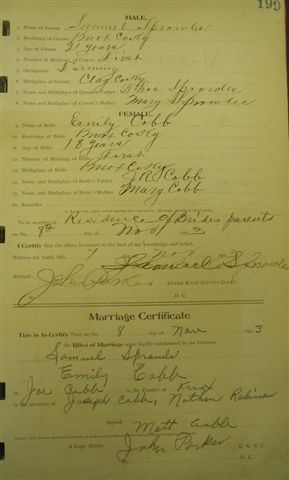 190
MALE.
1. Name of Groom: Samuel Sprowles
2. Residence of Groom: Knox Co Ky
3. Age of Groom: 21 years
4. Number of Marriage of Groom: First
5. Occupation: Farming
6. Birthplace of Groom: Clay Co Ky
7. Name and Birthplace of Groom's Father
8. Name and Birthplace of Groom's Mother: Mary Sprowles
FEMALE.
9. Name of Bride: Emily Cobb
10. Residence of Bride: Knox Co Ky
11. Age of Bride: 18 years
12. Number of Marriage of Bride: First
13. Birthplace of Bride: Knox Co Ky
14. Name and Birthplace of Bride's Father: Cobb
15. Name and Birthplace of Bride's Mother: Mary Cobb
16. Remarks
To be married at Residence of Brides parents
on the 8th day of Nov 3
I Certify that the above is correct to the best of my knowledge and belief.
Witness my hand, this 7 Nov 3
Samuel Sprowles
ATTEST:
John Parker CLERK KNOX COUNTY COURT.
D. C.
Marriage Certificate
This is to Certify That on the 8 day of Nov 3
the Rites of Marriage were legally solemnized by me between
Samuel Sprowls
Emily Cobb
at Joe Cobbs in the County of Knox
in the presence of Joseph Cobb, Nathan Robinson
Signed: Matt Cobb
A Copy Attest: John Parker C.K.C.C.
D.C.